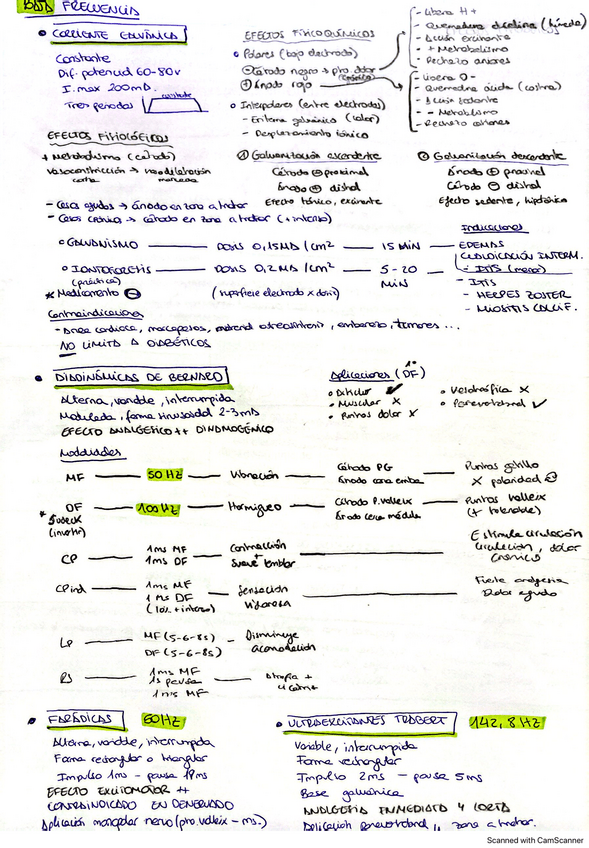 BAJA FRECUENCIA
• CORRIENTE GALVÁNICA
Constante
Dif. potencial 60-80v
I. max 200mA.
Tres periodos
EFECTOS FISICOQUÍMICOS
• Polares (bajo electrodo)
⊖ Cátodo negro → pro. dolor
⊕ Ánodo rojo
• Interpolares (entre electrodos)
- Eritema galvánico (calor)
- Desplazamiento iónico
- Libera H+
- Quemadura alcalina (húmeda)
- Acción excitante
- + Metabolismo
- Rechazo aniones
- Libera O-
- Quemadura ácida (costra)
- Acción sedante
- - Metabolismo
- Rechazo cationes
EFECTOS FISIOLÓGICOS
+ Metabolismo (cátodo)
Vasoconstricción → vasodilatación
corta
marcada
① Galvanización ascendente
Cátodo ⊖ proximal
Ánodo ⊕ distal
Efecto tónico, excitante
② Galvanización descendente
Ánodo ⊕ proximal
Cátodo ⊖ distal
Efecto sedante, hipotónico
- Casos agudos → ánodo en zona a tratar
- Casos crónicos → cátodo en zona a tratar (+ intenso)
Indicaciones
• GALVANISMO — DOSIS 0,15MA/cm² — 15 MIN — EDEMAS
CLAUDICACIÓN INTERM.
- ITIS (menor)
• IONTOFORESIS — DOSIS 0,2MA/cm² — 5-20 MIN — - ITIS
(práctica)
* Medicamento ⊖
(superficie electrodo x dosis)
- HERPES ZOSTER
- MIOSITIS CALCIF.
Contraindicaciones
- Área cardíaca, marcapasos, material osteosíntesis, embarazo, tumores...
NO LIMITA A DIABÉTICOS
• DIADINÁMICAS DE BERNARD
Alterna, variable, interrumpida
Modulada, forma sinusoidal 2-3mA
EFECTO ANALGÉSICO ++ DINAMOGÉNICO
Aplicaciones (DF)
• Articular ✓
• Muscular X
• Puntos dolor X
• Vasotrófica X
• Paravertebral ✓
Modalidades
MF — 50 HZ — Vibración — Cátodo PG
Ánodo cara — Puntos gatillo
X polaridad ⊖
* DF — 100 HZ — Hormigueo — Cátodo P. valleix
Ánodo cerca médula — Puntos valleix
(+ tolerable)
CP — 1ms MF
1ms DF — Contracción
+
suave temblor — Estimula circulación
circulación, dolor
crónico
CPind — 1ms MF
1ms DF
(10% + intenso) — Sensación
vigorosa — Fuerte analgesia
Dolor agudo
LP — MF (5-6-8s)
DF (5-6-8s) - Disminuye
acomodación
RS — 1ms MF
1s pausa
1ms MF — Atrofia +
• FARÁDICAS 50HZ
Alterna, variable, interrumpida
Forma rectangular o triangular
Impulso 1ms - pausa 19ms
EFECTO EXCITOMOTOR ++
CONTRAINDICADO EN DENERVADO
Aplicación monopolar nervio (pto. valleix - ms.)
• ULTRAEXCITANTES TRABERT 142,8 HZ
Variable, interrumpida
Forma rectangular
Impulso 2ms - pausa 5ms
Base galvánica
ANALGESIA INMEDIATA Y CORTA
Aplicación paravertebral, zona a tratar.
Scanned with CamScanner